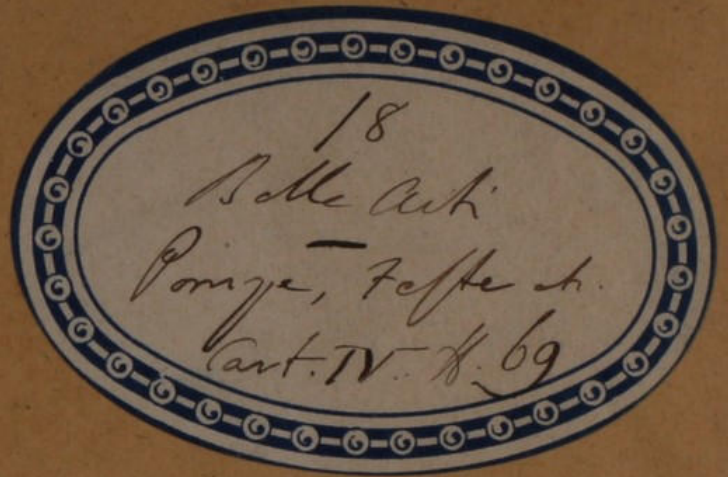 18
Belle Arti
—
Pompe, Feste etc.
Cart. IV. N. 69